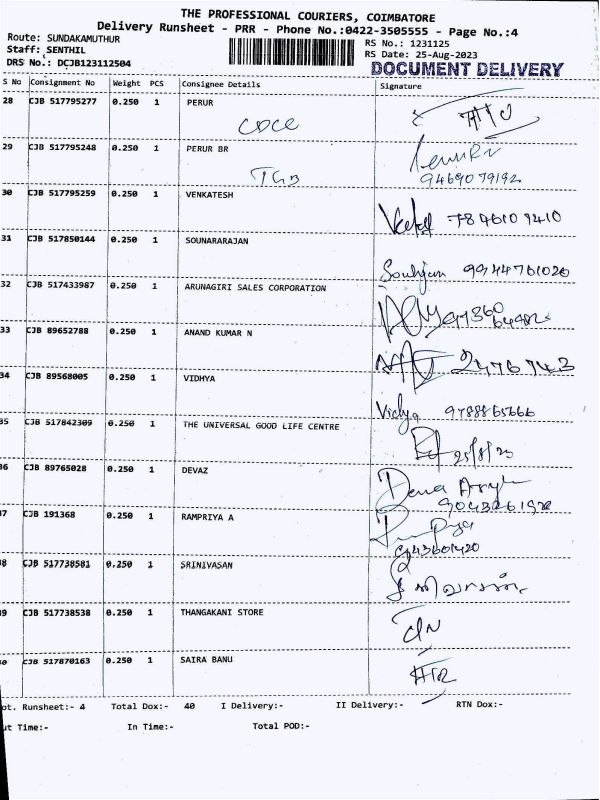 THE PROFESSIONAL COURIERS, COIMBATORE
Delivery Runsheet - PRR - Phone No.:0422-3505555 - Page No.:4
Route: SUNDAKAMUTHUR
Staff: SENTHIL
DRS No.: DCJB123112504
RS No.: 1231125
RS Date: 25-Aug-2023
DOCUMENT DELIVERY
S No Consignment No Weight PCS Consignee Details Signature
28 CJB 517795277 0.250 1 PERUR
CDCC
29 CJB 517795248 0.250 1 PERUR BR
TGB
9469079192
30 CJB 517795259 0.250 1 VENKATESH
7846109410
31 CJB 517850144 0.250 1 SOUNARARAJAN
9944761020
32 CJB 517433987 0.250 1 ARUNAGIRI SALES CORPORATION
33 CJB 89652788 0.250 1 ANAND KUMAR N
34 CJB 89568005 0.250 1 VIDHYA
Vidya 9788865666
35 CJB 517842309 0.250 1 THE UNIVERSAL GOOD LIFE CENTRE
25/8/23
36 CJB 89765028 0.250 1 DEVAZ
37 CJB 191368 0.250 1 RAMPRIYA A
38 CJB 517738581 0.250 1 SRINIVASAN
39 CJB 517738538 0.250 1 THANGAKANI STORE
40 CJB 517870163 0.250 1 SAIRA BANU
ot. Runsheet:- 4 Total Dox:- 40 I Delivery:- II Delivery:- RTN Dox:-
ut Time:- In Time:- Total POD:-